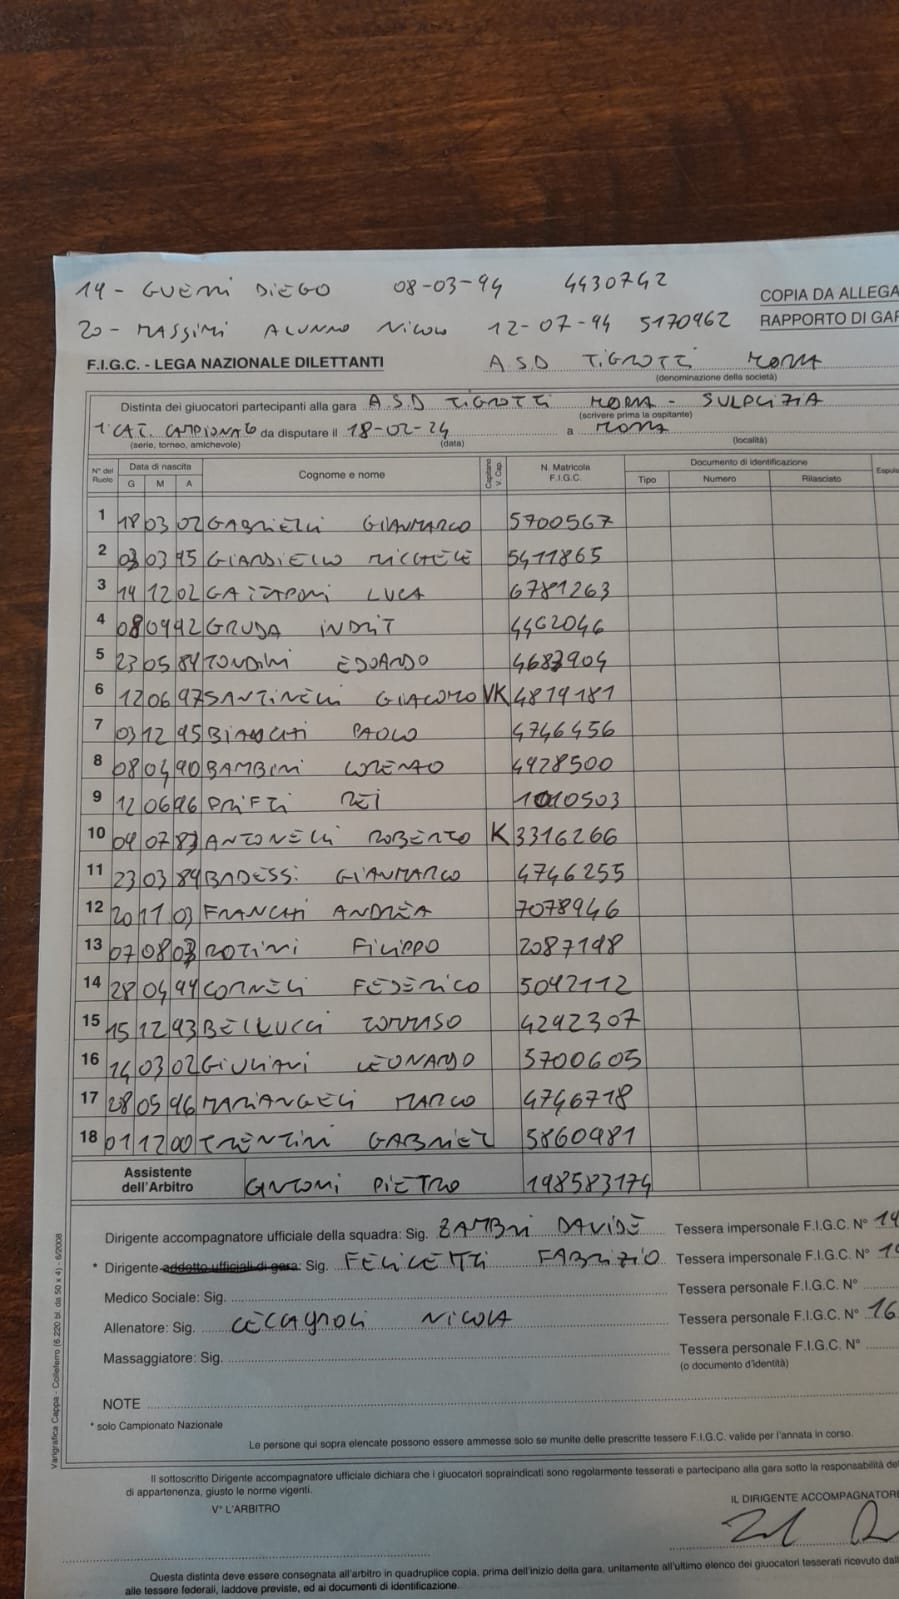 19 - GUERRI DIEGO 08-03-94 4430742
20 - MASSIMI ALUNNO NICOLO 12-07-94 5170962
COPIA DA ALLEGA
RAPPORTO DI GAR
F.I.G.C. - LEGA NAZIONALE DILETTANTI A.S.D TIGROTTI MORRA
(denominazione della società)
Distinta dei giuocatori partecipanti alla gara A.S.D TIGROTTI MORRA - SULPIZIA
(scrivere prima la ospitante)
1°CAT. CAMPIONATO da disputare il 18-02-24 a MORRA
(serie, torneo, amichevole) (data) (località)
N° del Ruolo Data di nascita G M A Cognome e nome Capitano V. Cap. N. Matricola F.I.G.C. Documento di identificazione Tipo Numero Rilasciato Espuls
1 18 03 02 GABRIELLI GIANMARCO 5700567
2 03 03 95 GIANDIELLO MICHELE 5411865
3 14 12 02 GAZZAPONI LUCA 6781263
4 08 09 92 GRUDA INDRIT 4462046
5 23 05 84 TONDINI EDOARDO 4683904
6 12 06 97 SANTINELLI GIACOMO VK 4819181
7 03 12 95 BIANCHI PAOLO 4746456
8 08 04 90 BAMBINI LORENZO 4928500
9 12 06 96 PRIFTI REI 1010503
10 04 07 83 ANTONELLI ROBERTO K 3316266
11 23 03 89 BADESSI GIANMARCO 4746255
12 20 11 03 FRANCHI ANDREA 7078946
13 07 08 03 ROTINI FILIPPO 2087198
14 28 04 94 CORNELI FEDERICO 5042112
15 15 12 93 BELLUCCI TOMMASO 4292307
16 14 03 02 GIULIANI LEONARDO 5700605
17 28 05 96 MARIANGELI MARCO 4746718
18 01 12 00 TRENTINI GABRIEL 5860981
Assistente dell'Arbitro GNONI PIETRO 198583174
Dirigente accompagnatore ufficiale della squadra: Sig. ZAMBRI DAVIDE Tessera impersonale F.I.G.C. N° 19
* Dirigente addetto ufficiali di gara: Sig. FELICETTI FABRIZIO Tessera impersonale F.I.G.C. N°
Medico Sociale: Sig. Tessera personale F.I.G.C. N°
Allenatore: Sig. CECCAGNOLI NICOLA Tessera personale F.I.G.C. N° 16
Massaggiatore: Sig. Tessera personale F.I.G.C. N°
(o documento d'identità)
NOTE
* solo Campionato Nazionale
Le persone qui sopra elencate possono essere ammesse solo se munite delle prescritte tessere F.I.G.C. valide per l'annata in corso.
Il sottoscritto Dirigente accompagnatore ufficiale dichiara che i giuocatori sopraindicati sono regolarmente tesserati e partecipano alla gara sotto la responsabilità de
di appartenenza, giusto le norme vigenti.
V° L'ARBITRO IL DIRIGENTE ACCOMPAGNATORE
Questa distinta deve essere consegnata all'arbitro in quadruplice copia, prima dell'inizio della gara, unitamente all'ultimo elenco dei giuocatori tesserati ricevuto dall
alle tessere federali, laddove previste, ed ai documenti di identificazione.
Varigrafica Cappa - Colleferro (6.220 bl. da 50 x 4) - 6/2008